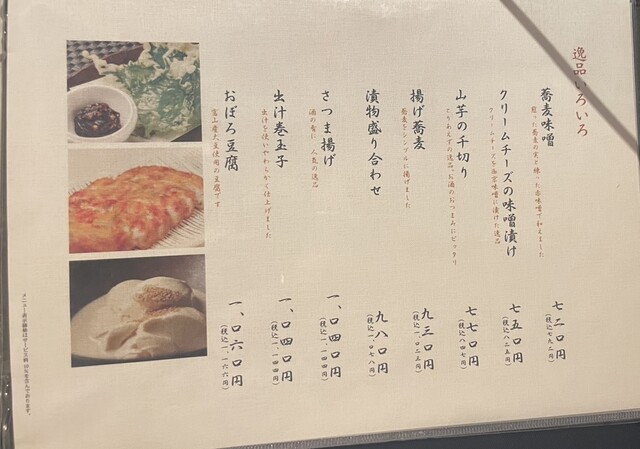 逸品いろいろ
蕎麦味噌
煎った蕎麦の実と練った赤味噌で和えました
七二〇円
(税込七九二円)
クリームチーズの味噌漬け
クリームチーズを西京味噌に漬けた逸品
七五〇円
(税込八二五円)
山芋の千切り
とりあえずの逸品、お酒のおつまみにピッタリ
七七〇円
(税込八四七円)
揚げ蕎麦
蕎麦をシンプルに揚げました
九三〇円
(税込一、〇二三円)
漬物盛り合わせ
九八〇円
(税込一、〇七八円)
さつま揚げ
酒の肴に人気の逸品
一、〇四〇円
(税込一、一四四円)
出汁巻玉子
出汁を使いやわらかく仕上げました
一、〇四〇円
(税込一、一四四円)
おぼろ豆腐
富山産大豆使用の豆腐です
一、〇六〇円
(税込一、一六六円)
メニュー表示価格はサービス料10%を含んでおります。